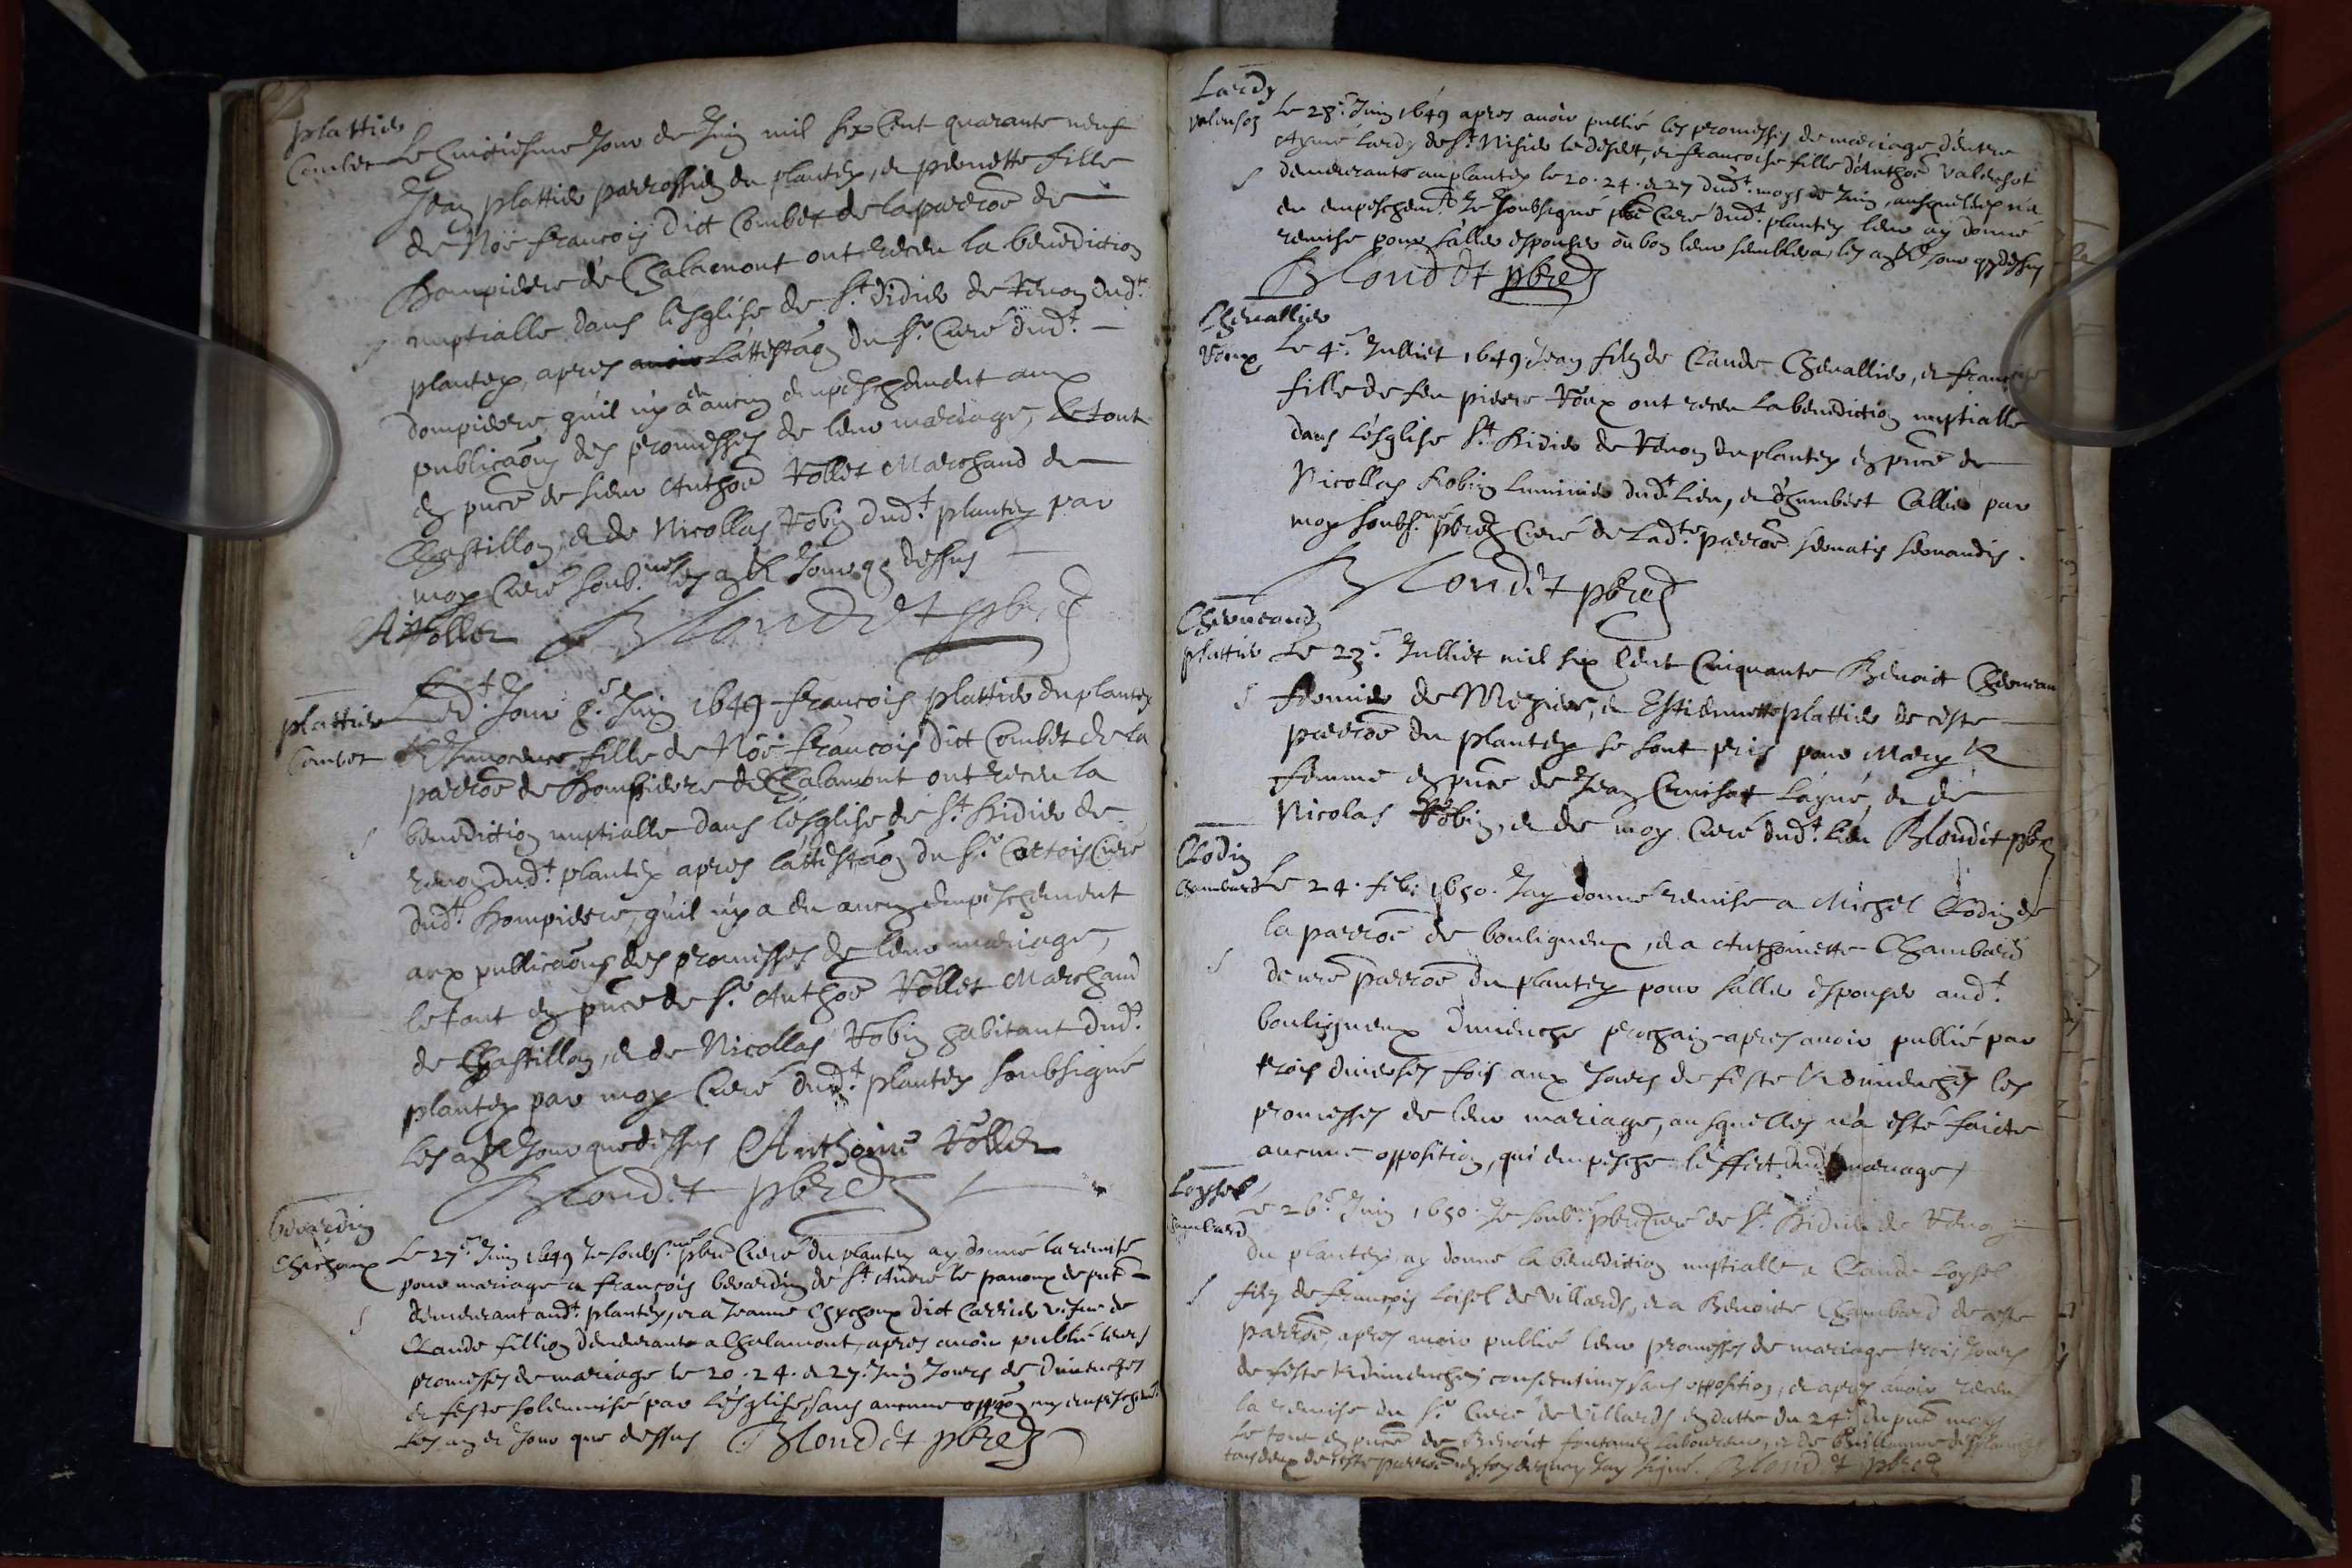 plattier
Combet
Le huictiesme Jour de Juin mil six Cent quarante neuf
Jean plattier parrossien du plantey, et pernette fille
de Noë francois dict Combet de la parroe de
Dompierre de Chalamont ont receu la benediction
nuptialle dans l'esglise de St Didier de Renon dudt
plantey, apres l'attestaon du Sr Curé dudt
dompierre, qu'il n'y a eu aucun empeschement aux
publicaons des promesses de leur mariage, le tout
en pnce de sieur Anthoe Vollet Marchand de
Chastillon, et de Nicollas Robin dudt plantey par
moy Curé soubné les an et Jour q dessus
A Vollet Blondet pbre
plattier
Combet
Ledt Jour 8e Juin 1649 francois plattier du plantey
et fille de Noë francois dict Combet de la
parroe de Dompierre de Chalamont ont receu la
benediction nuptialle dans l'esglise de St Didier de
renon dudt plantey apres l'attestaon du Sr Curé
dudt Dompierre, qu'il n'y a eu aucun empeschement
aux publicaons des promesses de leur mariage,
le tout en pnce de Sr Anthoe Vollet Marchand
de Chastillon, et de Nicollas Robin habitant dudt
plantey par moy Curé dudt plantey soubsigné
les an et Jour que dessus Anthoine Vollet
Blondet pbre
Le 27e Juin 1649 Je soubsné pbre Curé du plantey ay donné la remise
pour mariage a françois de St André le panoux de pnt
demeurant audt plantey, et a Jeanne dict vefve de
Claude fillion demeurante a Chalamont, apres avoir publié leurs
promesses de mariage le 20. 24. et 27. Juin Jours de dimenches
et feste solemnisé par l'esglise, sans aucune oppoon ny empeschemt
les an et Jour que dessus Blondet pbre
Lardy
Le 28e Juin 1649 apres avoir publié les promesses de mariage d'entre
Aymé Lardy de St Nisier le desert, et francoise fille d'Anthoe
demeurants au plantey le 20. 24. et 27 dudt moys de Juin, ausquelles n'a
eu empeschemt Je soubsigné pbre Curé dudt plantey leur ay donné
remise pour s'aller espouser ou bon leur semblera, les an et Jour q dessus
Blondet pbre
Chevallier
Roux
Le 4e Julliet 1649 Jean filz de Claude Chevallier, et francoise
fille de feu pierre Roux ont receu la benediction nuptialle
dans l'esglise St Didier de Renon du plantey en pnce de
Nicollas Robin luminier dudt lieu, et d'humbert Callier par
moy soubsné pbre Curé de ladte parroe servatis servandis.
Blondet pbre
plattier
Le 23e Julliet mil six Cent Cinquante Benoict
de Mezier, et Estiennette plattier de ceste
parroe du plantey se sont pris pour Mary et
femme en pnce de Jean l'ayné, et de
Nicolas Robin, et de moy Curé dudt lieu Blondet pbre
Clodin
Chambard
Le 24. feb: 1650. Jay donné remise a Michel Clodin de
la parroe de bouligneux, et a Anthoinette Chambard
de nre parroe du plantey pour s'aller espouser audt
bouligneux dimenche prochain apres avoir publié par
trois diverses fois aux Jours de feste et dimenches les
promesses de leur mariage, ausquelles n'a esté faicte
aucune opposition, qui empesche l'effect dudt mariage
Loysel
Chambard
Le 26e Juin 1650. Je soubné pbre Curé de St Didier de Renon
du plantey, ay donné la benediction nuptialle a Claude Loysel
filz de François Loisel de Villards, et a Benoicte Chambard de ceste
parroe, apres avoir publié leur promesses de mariage trois Jours
de feste et dimenches consecutives sans opposition, et apres avoir receu
la remise du Sr Curé de Villards en datte du 24e du pnt moys
Le tout en pnce de Benoict laboureur, et de Guillaume
tous deux de ceste parroe en foy de quoy Jay signé. Blondet pbre